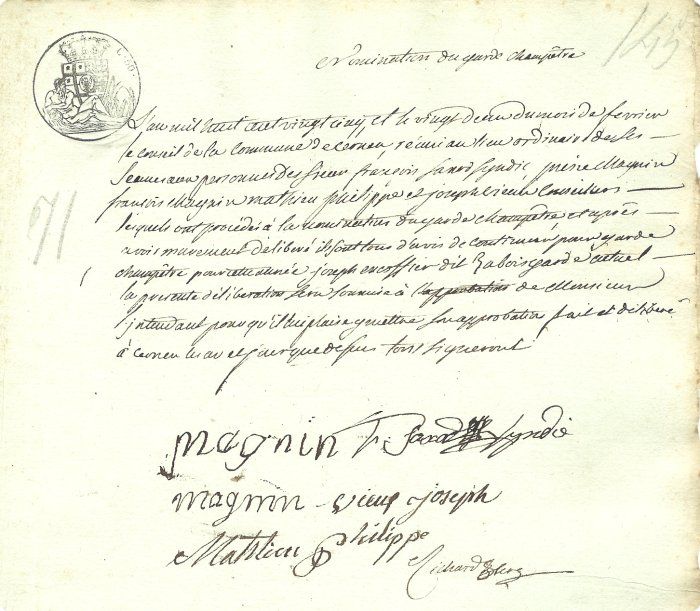 Nomination du garde champêtre
L'an mil huit cent vingt cinq et le vingt du mois de fevrier
le Conseil de la Commune de Cerneu, réuni au lieu ordinaire de ses
seances aux personnes des sieur françois Syndic, Magnin
françois Magnin mathieu philippe et joseph vieux Conseillers
lesquels ont procédés à la nomination du garde champêtre et après
avoir murement deliberé ils sont tous d'avis de continuer pour garde
champêtre pour cette année joseph dit Rabois garde actuel
la presente déliberation sera soumise à l'approbation de Monsieur
l'jntendant pour qu'il lui plaise y mettre son approbation fait et deliberé
à Cerneu les an et jour que dessus tous signeront
magnin f. syndic
magnin vieux joseph
Mathieu philippe
Richard